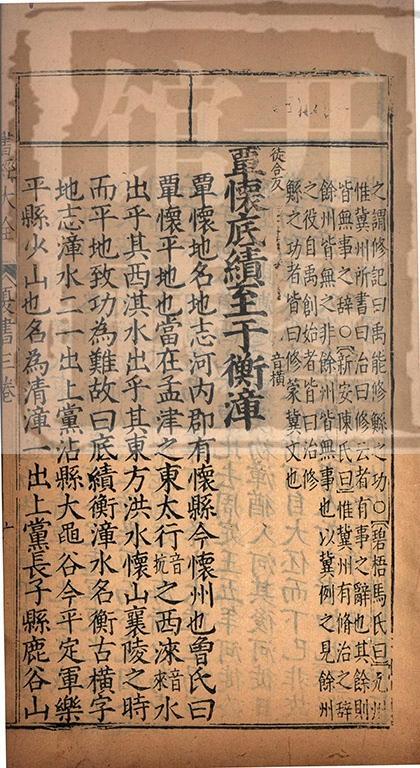 之謂修記曰禹能修鯀之功○碧梧馬氏曰九州
惟冀州所書曰治曰修云者有事之辭也其餘則
皆無事之辭○新安陳氏曰惟冀州有脩治之辭
餘州皆無之非餘州皆無事也以冀例之見餘州
之役自禹創始者皆曰治修
鯀之功者皆曰修蒙冀文也
覃徒含反懷底績至于衡音橫漳
覃懷地名地志河內郡有懷縣今懷州也曾氏曰
覃懷平地也當在孟津之東太行音抗之西淶音來水
出乎其西淇水出乎其東方洪水懷山襄陵之時
而平地致功為難故曰底績衡漳水名衡古橫字
地志漳水二一出上黨沾縣大黽谷今平定軍樂
平縣少山也名為清漳一出上黨長子縣鹿谷山
大全 夏書三卷